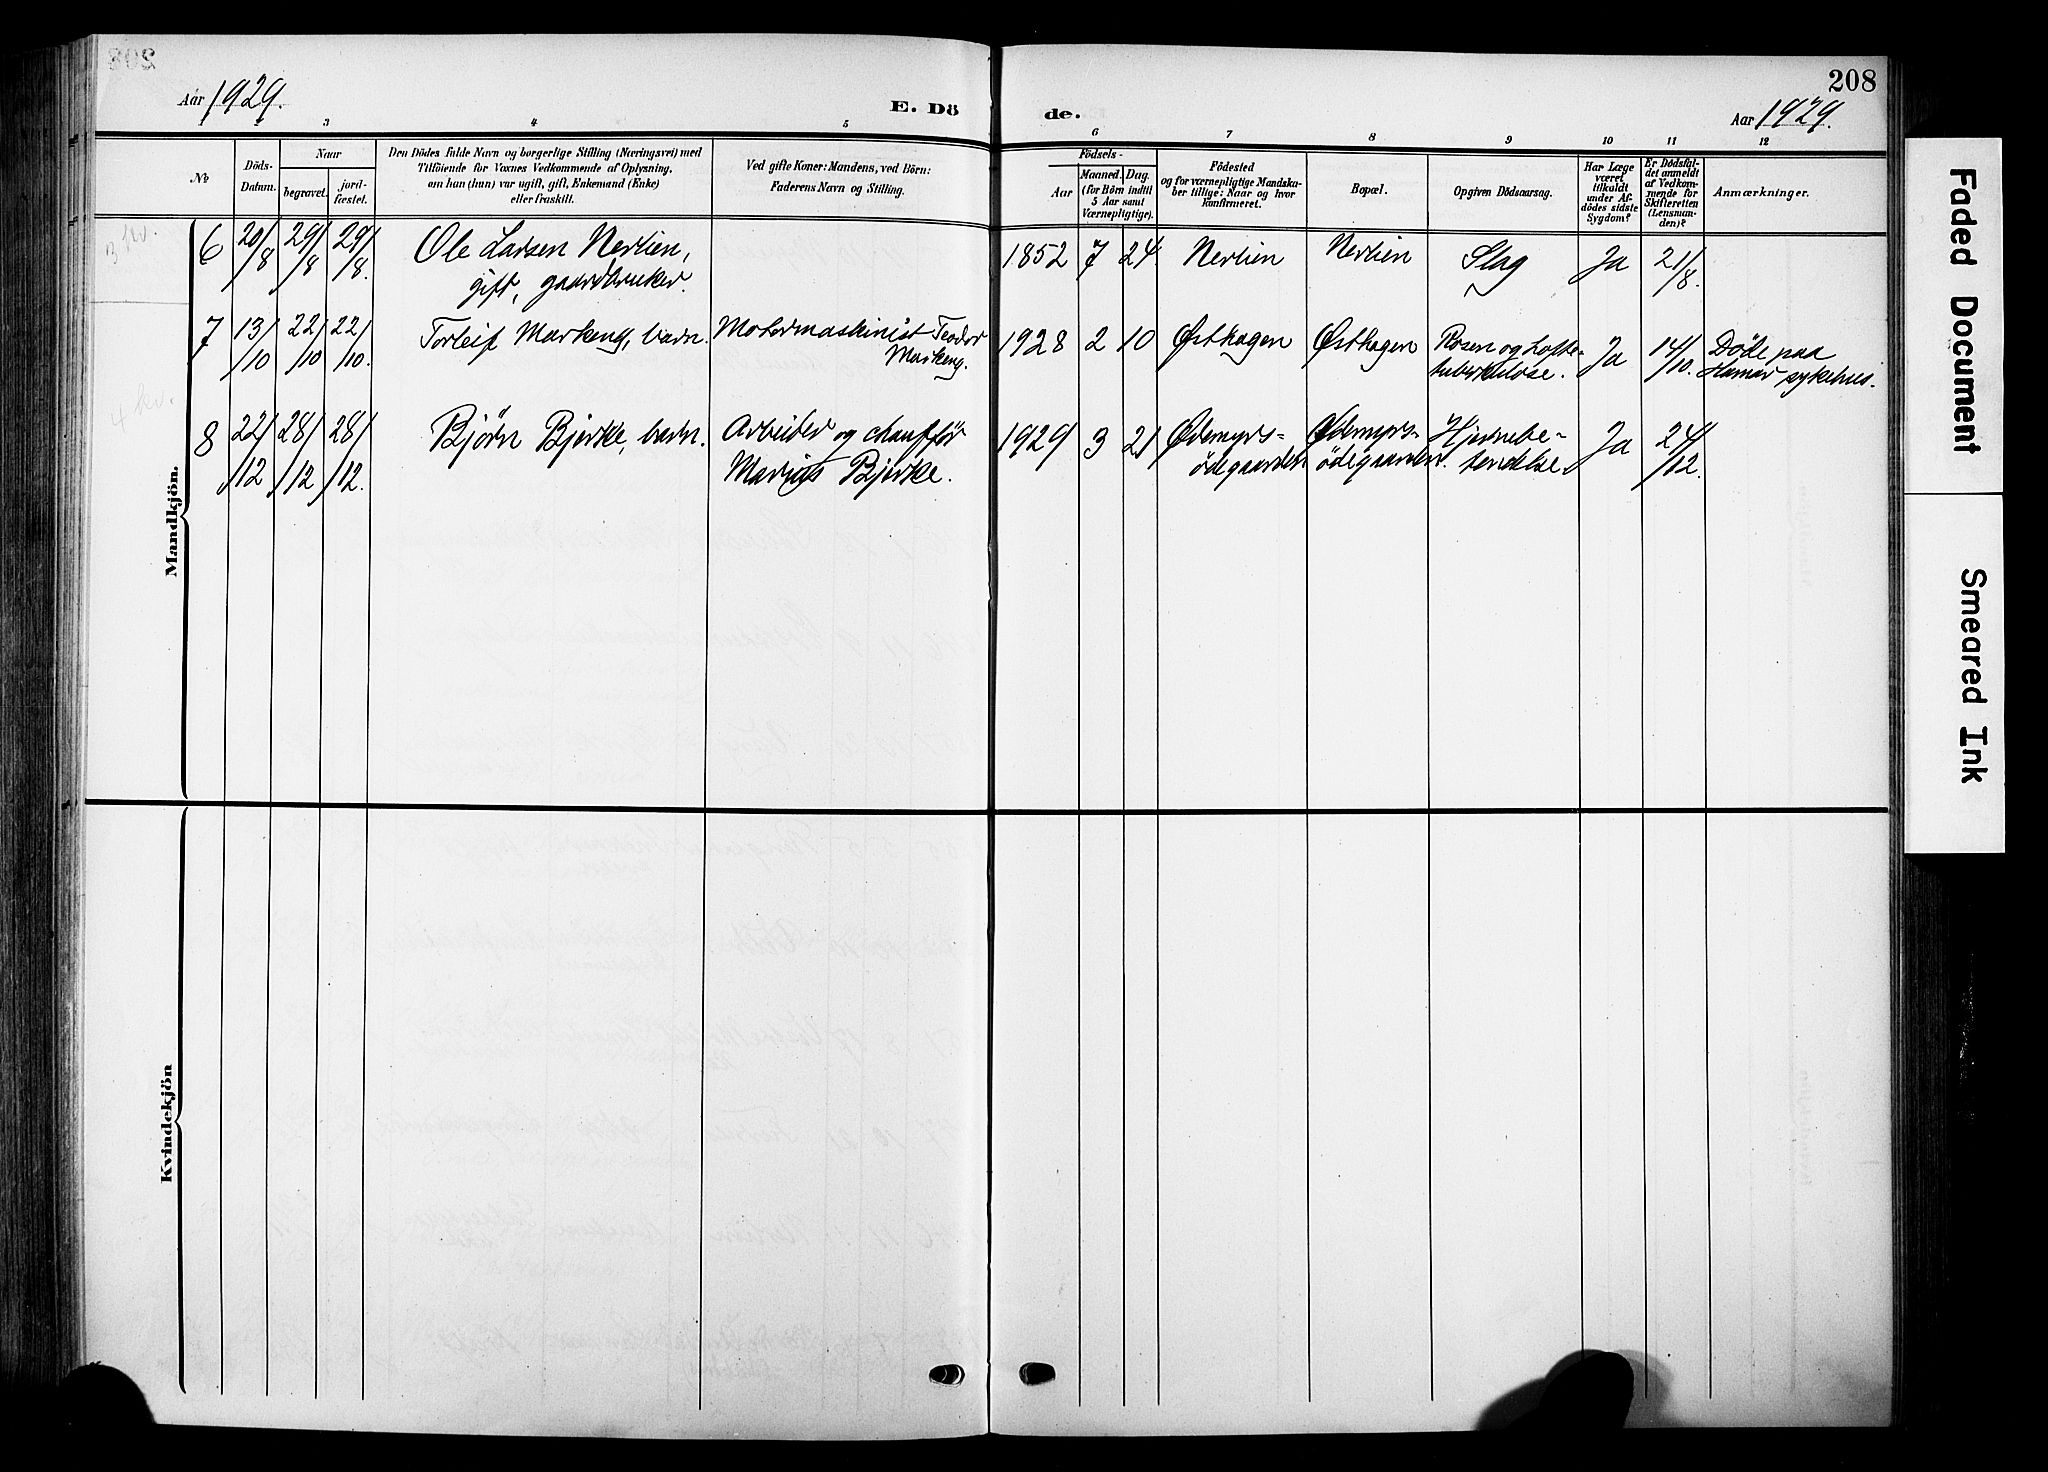 208
Aar 1929.
E. Dö
de.
Aar 1929.
1 2 3 4 5 6 7 8 9 10 11 12
No
Döds-
Datum.
Naar
begravet.
jord-
fæstet.
Den Dödes fulde Navn og borgerlige Stilling (Næringsvei) med
Tilföiende for Voxnes Vedkommende af Oplysning,
om han (hun) var ugift, gift, Enkemand (Enke)
eller fraskilt.
Ved gifte Koner: Mandens, ved Börn:
Faderens Navn og Stilling.
Födsels-
Aar
Maaned. Dag.
(for Börn indtil
5 Aar samt
Værnepligtige).
Födested
og for værnepligtige Mandska-
ber tillige: Naar og hvor
konfirmeret.
Bopæl.
Opgiven Dödsaarsag.
Har Læge
været
tilkaldt
under Af-
dödes sidste
Sygdom?
Er Dödsfal-
det anmeldt
af Vedkom-
mende for
Skifteretten
(Lensman-
den)?
Anmærkninger.
Mandkjön.
6 20/8 29/8 29/8. Ole Larsen Nerlien, 1852 7 24. Nerlien Nerlien Slag Ja 21/8.
gift, gaardbruker.
7 13/10 22/10 22/10. Torleif Markeng, barn. Motormaskinist Teodor 1928 2 10 Østhagen Østhagen Rosen og Lofte- Ja 14/10. Døde paa
Markeng. tuberkulose. Hamar sykehus.
4 kv.
8 22/12 28/12 28/12. Bjørn Bjerke, barn. Arbeider og chauffør 1929 3 21 Ødemyrs- Ødemyrs- Hjernebe- Ja 24/12.
Marius Bjerke. ödegaarden ödegaarden. tendelse
Kvindekjön
Faded Document
Smeared Ink